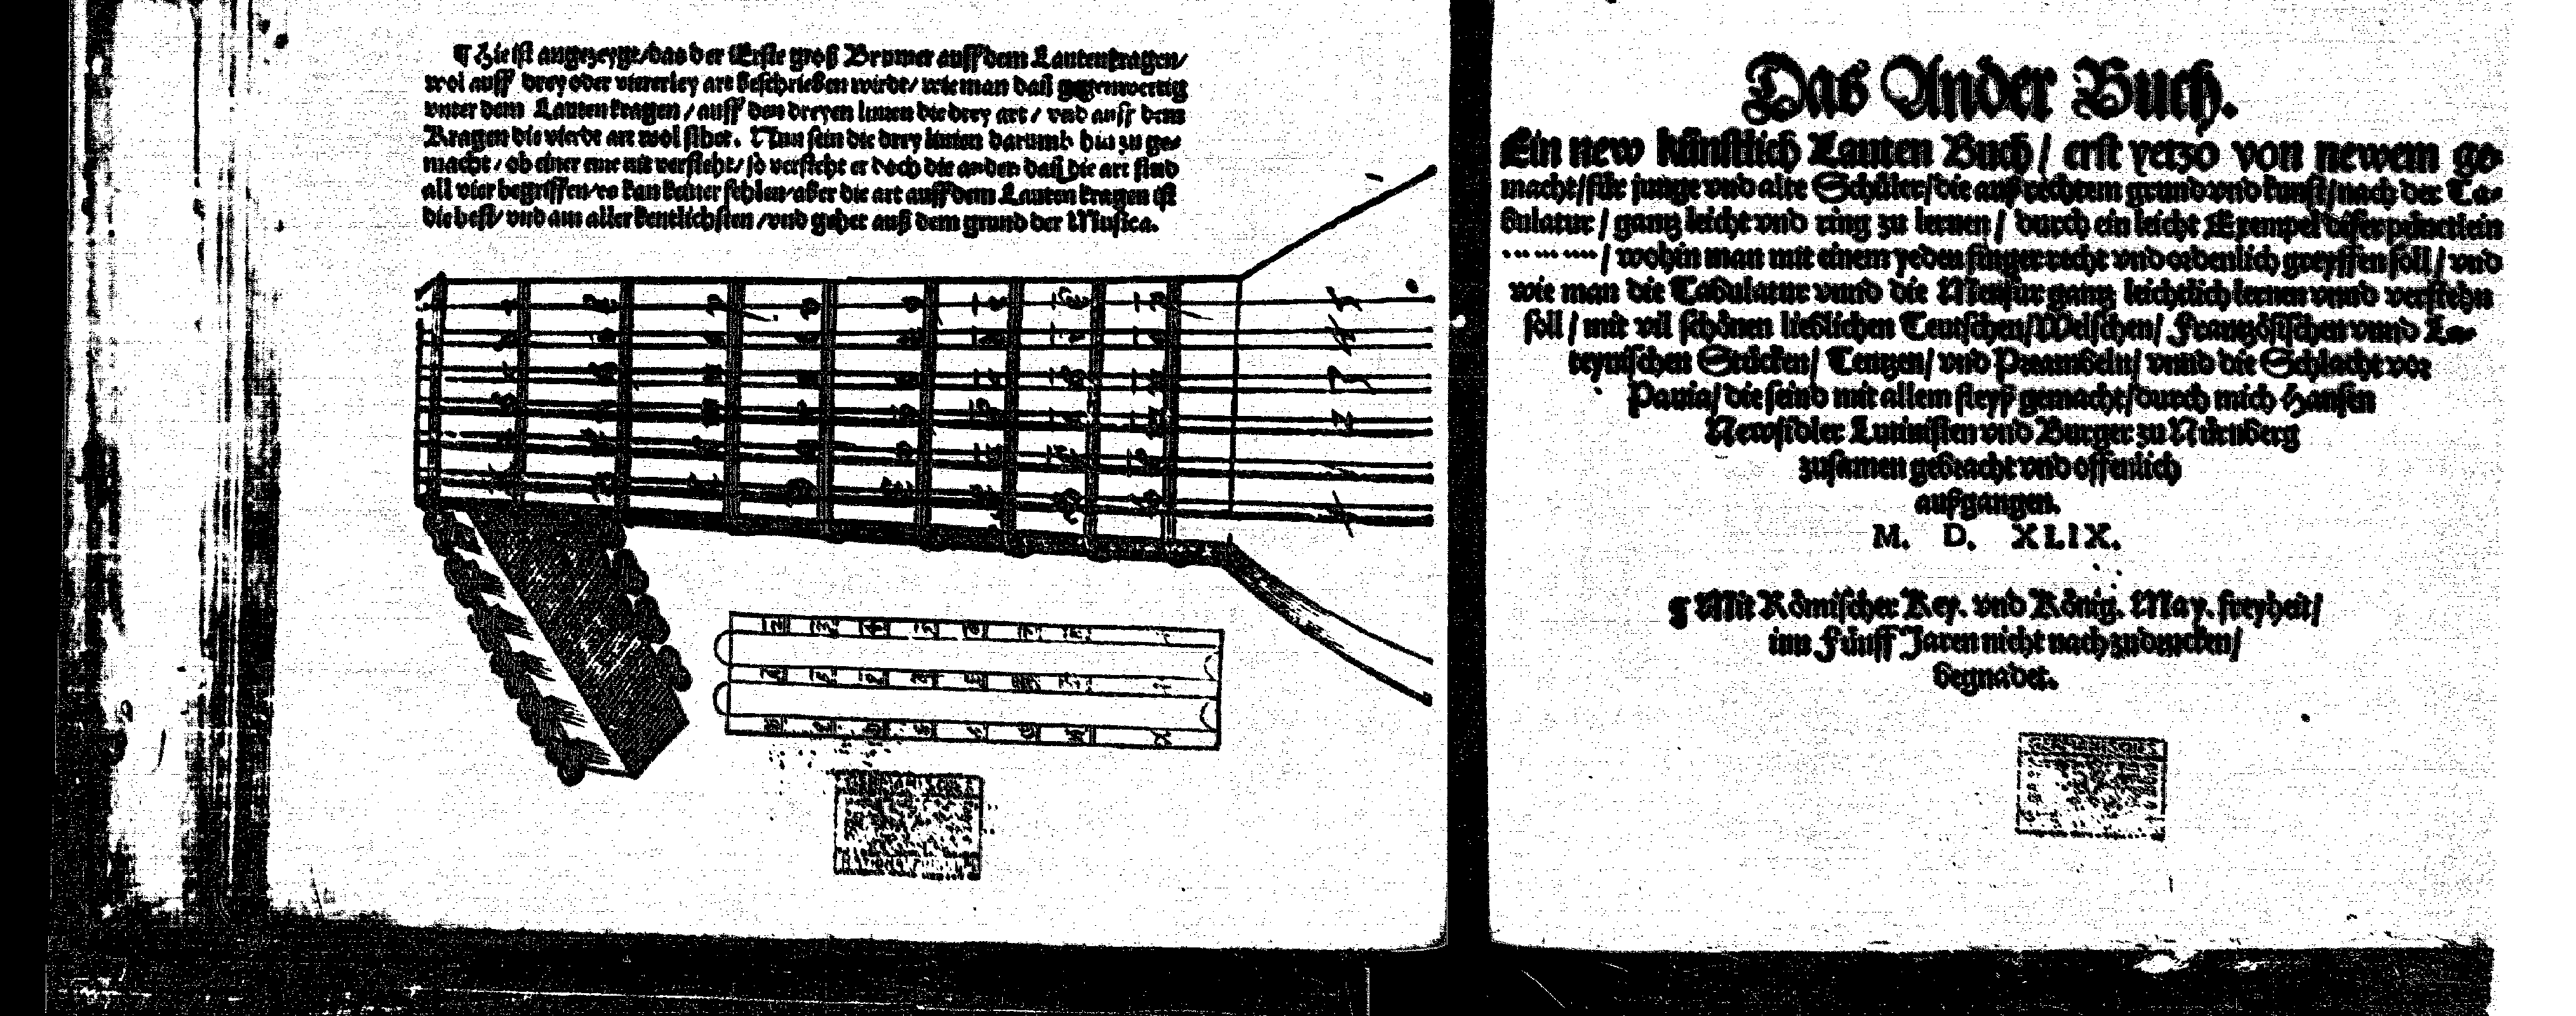 ¶ Hie ist angezeygt/das der Erste groß Brumer auff dem Lautenkragen/
wol auff drey oder viererley art beschrieben wirdt/ wie man dañ gegenwertig
vnter dem Lauten kragen / auff den dreyen linien die drey art / vnd auff dem
Kragen die vierde art wol sihet. Nun sein die drey linien darumb hin zu ge-
macht / ob einer eine nit versteht/ so versteht er doch die ander dañ die art sind
all vier begriffen/ es kan keiner fehlen/ aber die art auff dem Lauten kragen ist
die best/ vnd am aller kentlichsten /vnd gehet auß dem grund der Musica.
Das Ander Buch.
Ein new künstlich Lauten Buch / erst yetzo von newem ge-
macht/für junge vnd alte Schüler/die auß rechtem grund vnd kunst/nach der Ta-
bulatur / gantz leicht vnd ring zu lernen / durch ein leicht Exempel diser pünctlein
. .. ... .... / wohin man mit einem yeden finger recht vnd ordenlich greyffen soll / vnd
wie man die Tabulatur vnnd die Mensur gantz leichtlich lernen vnnd verstehn
soll / mit vil schönen lieblichen Teutschen/Welschen/ Frantzösischen vnnd La-
teynischen Stücken/ Tentzen/ vnd Preambeln/ vnnd die Schlacht vor
Pauia/ die seind mit allem fleyß gemacht/durch mich Hansen
Newsidler Lutinisten vnd Burger zu Nürnberg
zusamen gebracht vnd offenlich
außgangen.
M. D. XLIX.
¶ Mit Römischer Key. vnd König. May. freyheit/
inn Fünff Jaren nicht nach zudrucken/
begnadet.